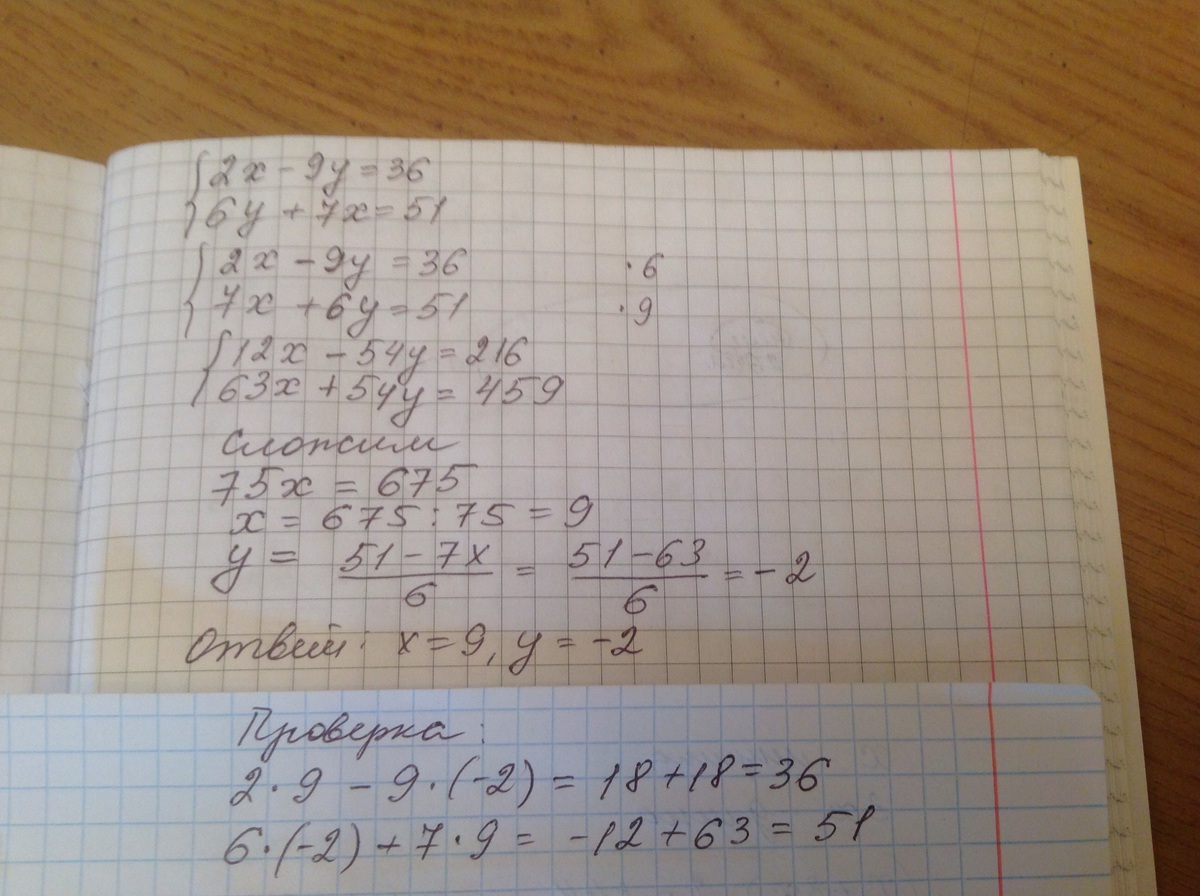 {2x - 9y = 36
{6y + 7x = 51
{2x - 9y = 36 ·6
{7x + 6y = 51 ·9
{12x - 54y = 216
{63x + 54y = 459
Сложим
75x = 675
x = 675 : 75 = 9
y = (51 - 7x)/6 = (51 - 63)/6 = -2
Ответ: x = 9, y = -2
Проверка:
2·9 - 9·(-2) = 18 + 18 = 36
6·(-2) + 7·9 = -12 + 63 = 51